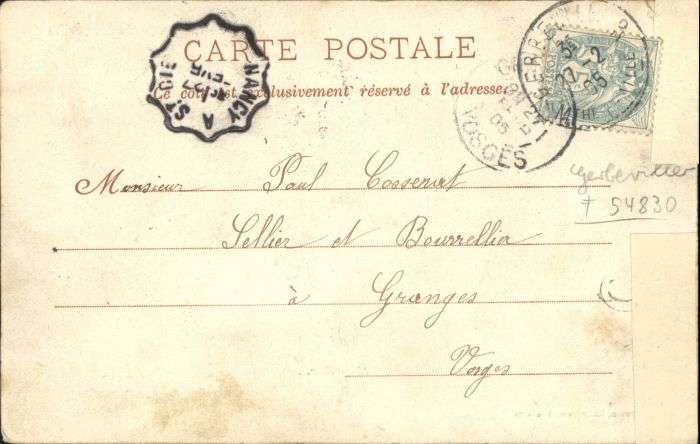 CARTE POSTALE
Ce côté est exclusivement réservé à l'adresse
NANCY A ST DIÉ
27
VOSGES
27 -2
05
Gerbeviller
+ 54830
Monsieur Paul Cosserat
Sellier et Bourrellier
à Granges
Vosges